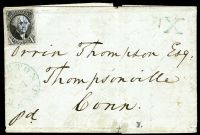 X
Orrin Thompson Esq.
Thompsonville
Conn.
pd